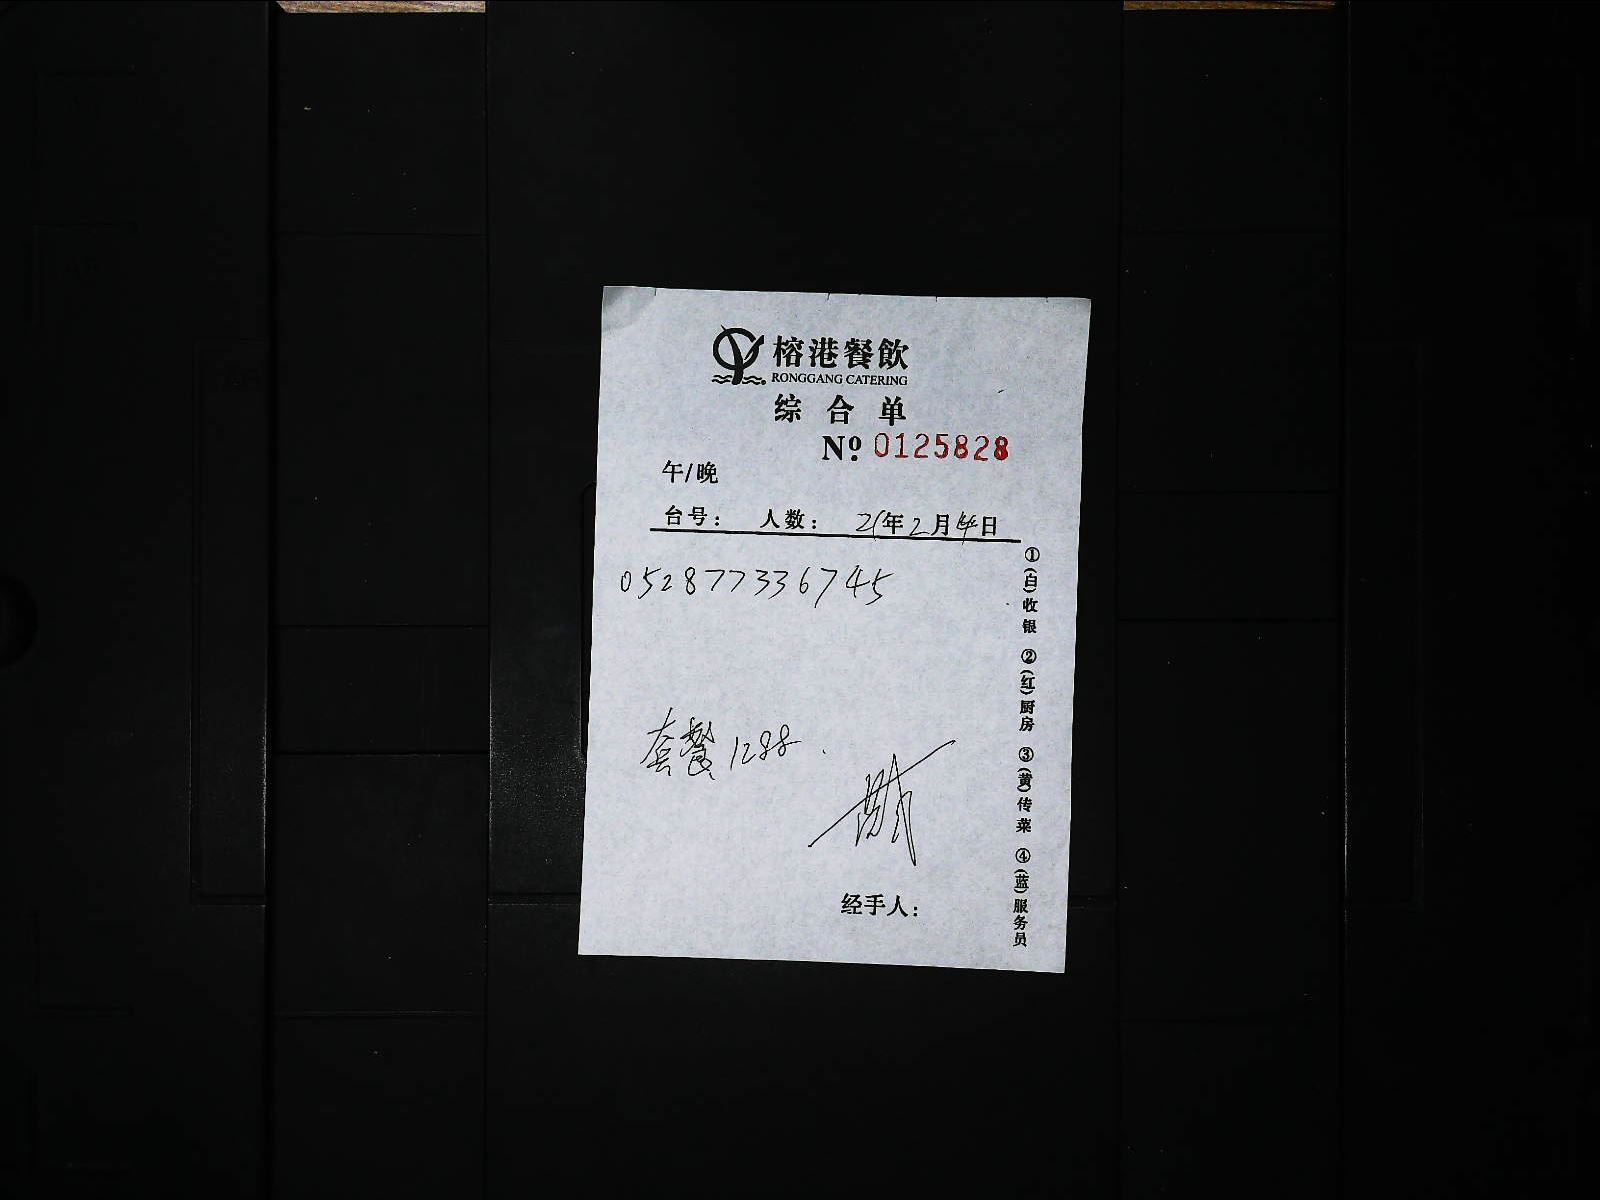 榕港餐飲
RONGGANG CATERING
综合单
Nº 0125828
午/晚
台号： 人数： 21年2月14日
052877336745
套餐1288.
经手人：
①(白)收银 ②(红)厨房 ③(黄)传菜 ④(蓝)服务员